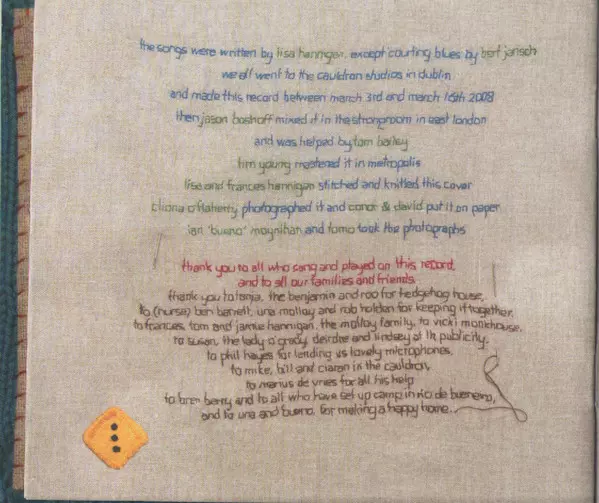 the songs were written by lisa hannigan, except courting blues by bert jansch
we all went to the cauldron studios in dublin
and made this record between march 3rd and march 16th 2008
then jason boshoff mixed it in the strongroom in east london
and was helped by tom bailey
tim young mastered it in metropolis
lisa and frances hannigan stitched and knitted this cover
cliona o'flaherty photographed it and conor & david put it on paper
ian 'bueno' moynihan and tomo took the photographs
thank you to all who sang and played on this record,
and to all our families and friends.
thank you to tanja, the benjamin and roo for hedgehog house,
to (nurse) ben barrett, una molloy and rob holden for keeping it together,
to frances, tom and jamie hannigan, the molloy family, to vicki monkhouse,
to susan, the lady o'grady, deirdre and lindsey at lh publicity,
to phil hayes for lending us lovely microphones,
to mike, bill and ciaran in the cauldron,
to marius de vries for all his help
to bren berry and to all who have set up camp in rio de bueneiro,
and to una and bueno, for making a happy home...